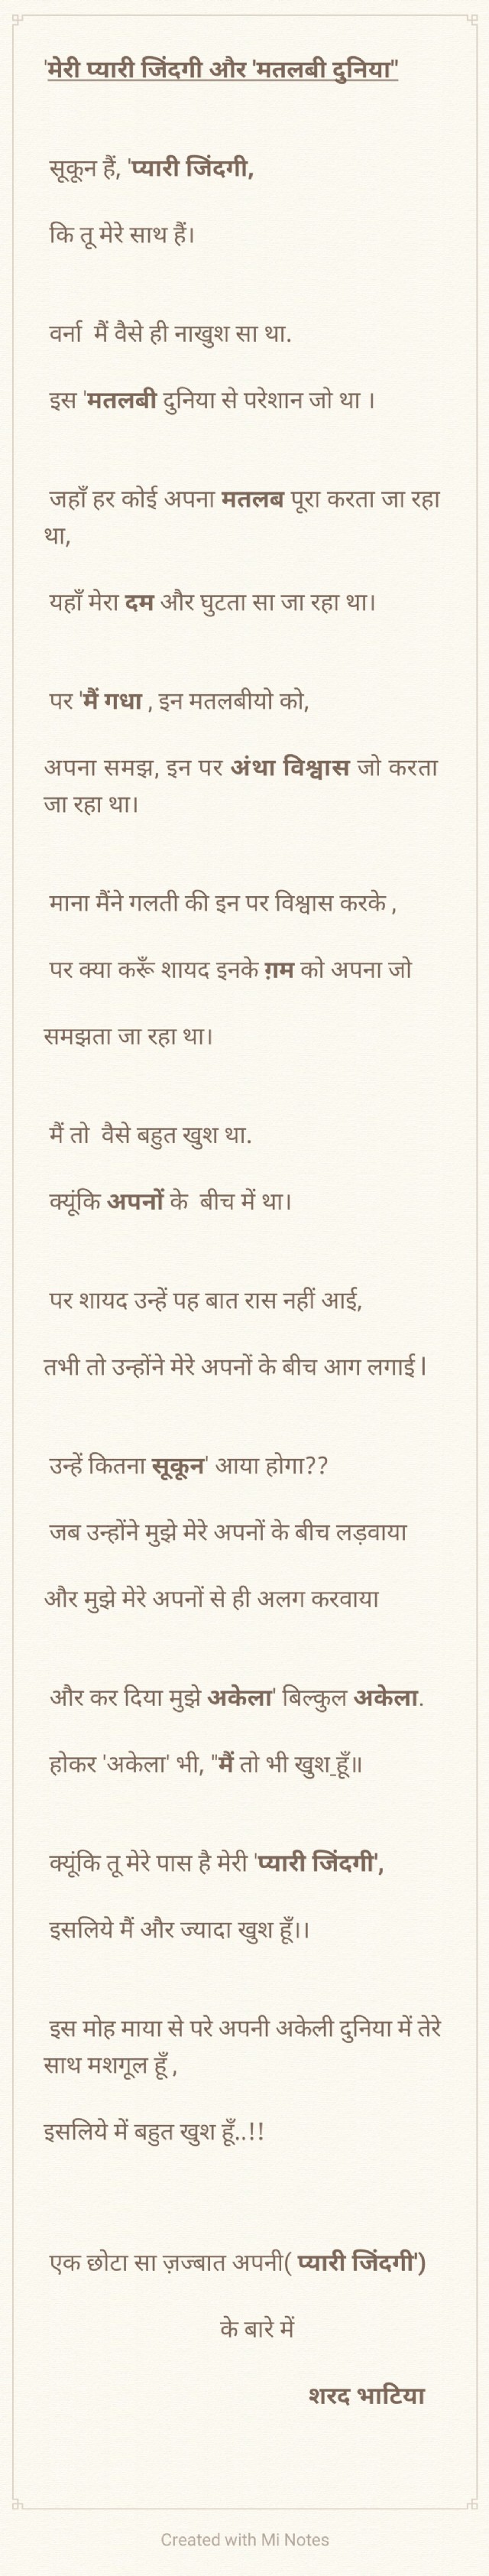 'मेरी प्यारी जिंदगी और 'मतलबी दुनिया"
सूकून हैं, 'प्यारी जिंदगी,
कि तू मेरे साथ हैं।
वर्ना मैं वैसे ही नाखुश सा था.
इस 'मतलबी दुनिया से परेशान जो था ।
जहाँ हर कोई अपना मतलब पूरा करता जा रहा
था,
यहाँ मेरा दम और घुटता सा जा रहा था।
पर 'मैं गधा , इन मतलबीयो को,
अपना समझ, इन पर अंथा विश्वास जो करता
जा रहा था।
माना मैंने गलती की इन पर विश्वास करके ,
पर क्या करूँ शायद इनके ग़म को अपना जो
समझता जा रहा था।
मैं तो वैसे बहुत खुश था.
क्यूंकि अपनों के बीच में था।
पर शायद उन्हें पह बात रास नहीं आई,
तभी तो उन्होंने मेरे अपनों के बीच आग लगाई l
उन्हें कितना सूकून' आया होगा??
जब उन्होंने मुझे मेरे अपनों के बीच लड़वाया
और मुझे मेरे अपनों से ही अलग करवाया
और कर दिया मुझे अकेला' बिल्कुल अकेला.
होकर 'अकेला' भी, "मैं तो भी खुश_हूँ॥
क्यूंकि तू मेरे पास है मेरी 'प्यारी जिंदगी',
इसलिये मैं और ज्यादा खुश हूँ।।
इस मोह माया से परे अपनी अकेली दुनिया में तेरे
साथ मशगूल हूँ ,
इसलिये में बहुत खुश हूँ..!!
एक छोटा सा ज़ज्बात अपनी( प्यारी जिंदगी')
के बारे में
शरद भाटिया
Created with Mi Notes